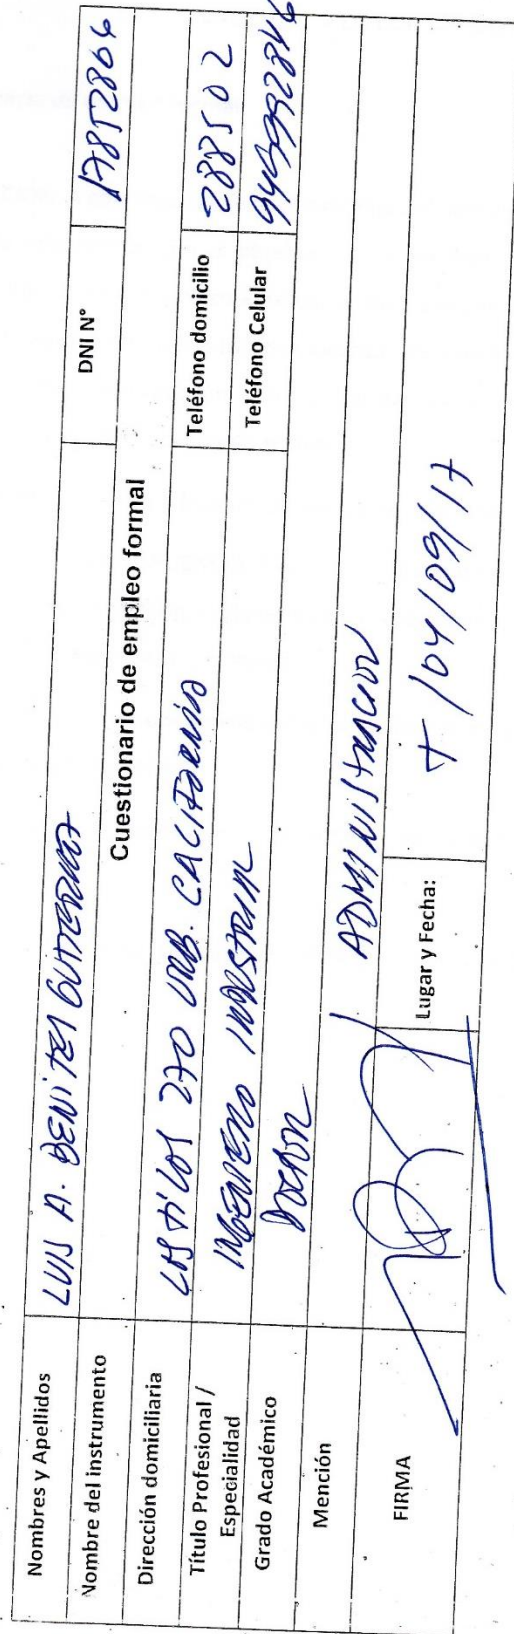 Nombres y Apellidos LUIS A. BENITES GUTIERREZ DNI N° 17852866
Nombre del instrumento Cuestionario de empleo formal
Dirección domiciliaria LOS TILOS 270 URB. CALIFORNIA
Título Profesional / Especialidad INGENIERO INDUSTRIAL Teléfono domicilio 288502
Grado Académico DOCTOR Teléfono Celular
Mención ADMINISTRACION
FIRMA Lugar y Fecha: T /04/09/17